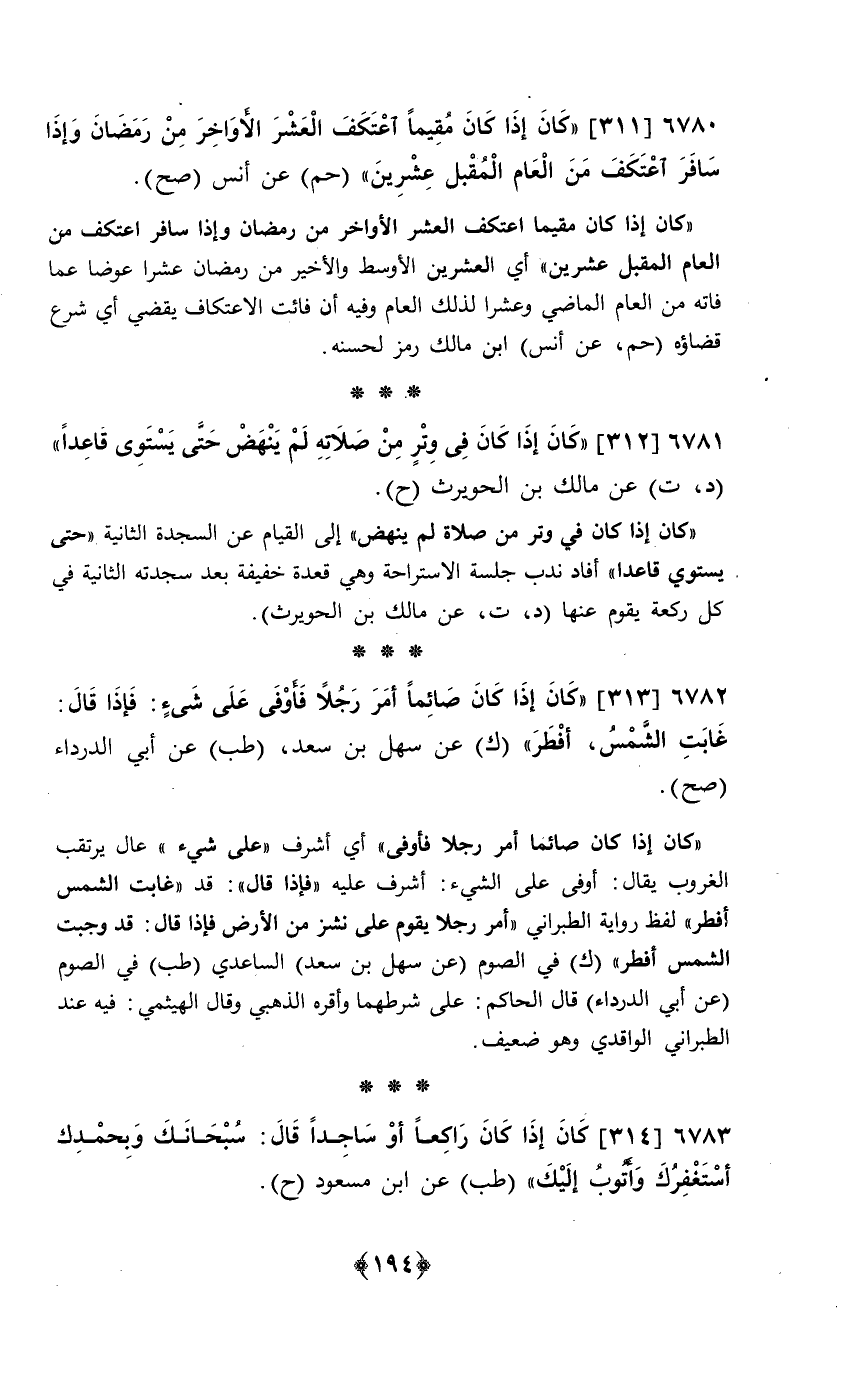 ٦٧٨٠ [٣١١] «كَانَ إِذَا كَانَ مُقِيماً ٱعْتَكَفَ الْعَشْرَ الأَوَاخِرَ مِنْ رَمَضَانَ وَإِذَا
سَافَرَ ٱعْتَكَفَ مَنَ الْعَام الْمُقْبل عِشْرِينَ» (حم) عن أنس (صح).
«كان إذا كان مقيما اعتكف العشر الأواخر من رمضان وإذا سافر اعتكف من
العام المقبل عشرين» أي العشرين الأوسط والأخير من رمضان عشرا عوضا عما
فاته من العام الماضي وعشرا لذلك العام وفيه أن فائت الاعتكاف يقضي أي شرع
قضاؤه (حم، عن أنس) ابن مالك رمز لحسنه.
* * *
٦٧٨١ [٣١٢] «كَانَ إِذَا كَانَ فِى وِتْرٍ مِنْ صَلَاتِهِ لَمْ يَنْهَضْ حَتَّى يَسْتَوِى قَاعِداً»
(د، ت) عن مالك بن الحويرث (ح).
«كان إذا كان في وتر من صلاة لم ينهض» إلى القيام عن السجدة الثانية «حتى
يستوي قاعدا» أفاد ندب جلسة الاستراحة وهي قعدة خفيفة بعد سجدته الثانية في
كل ركعة يقوم عنها (د، ت، عن مالك بن الحويرث).
* * *
٦٧٨٢ [٣١٣] «كَانَ إِذَا كَانَ صَائِماً أمَرَ رَجُلًا فَأَوْفَى عَلَى شَىءٍ: فَإِذَا قَالَ:
غَابَتِ الشَّمْسُ، أفْطَرَ» (ك) عن سهل بن سعد، (طب) عن أبي الدرداء
(صح).
«كان إذا كان صائما أمر رجلا فأوفى» أي أشرف «على شيء» عال يرتقب
الغروب يقال: أوفى على الشيء: أشرف عليه «فإذا قال»: قد «غابت الشمس
أفطر» لفظ رواية الطبراني «أمر رجلا يقوم على نشز من الأرض فإذا قال: قد وجبت
الشمس أفطر» (ك) في الصوم (عن سهل بن سعد) الساعدي (طب) في الصوم
(عن أبي الدرداء) قال الحاكم: على شرطهما وأقره الذهبي وقال الهيثمي: فيه عند
الطبراني الواقدي وهو ضعيف.
* * *
٦٧٨٣ [٣١٤] كَانَ إِذَا كَانَ رَاكِعـاً أوْ سَاجِـداً قَالَ: سُبْحَـانَـكَ وَبِحمْـدِك
أسْتَغْفِرُكَ وَأَتُوبُ إلَيْكَ» (طب) عن ابن مسعود (ح).
﴿١٩٤﴾